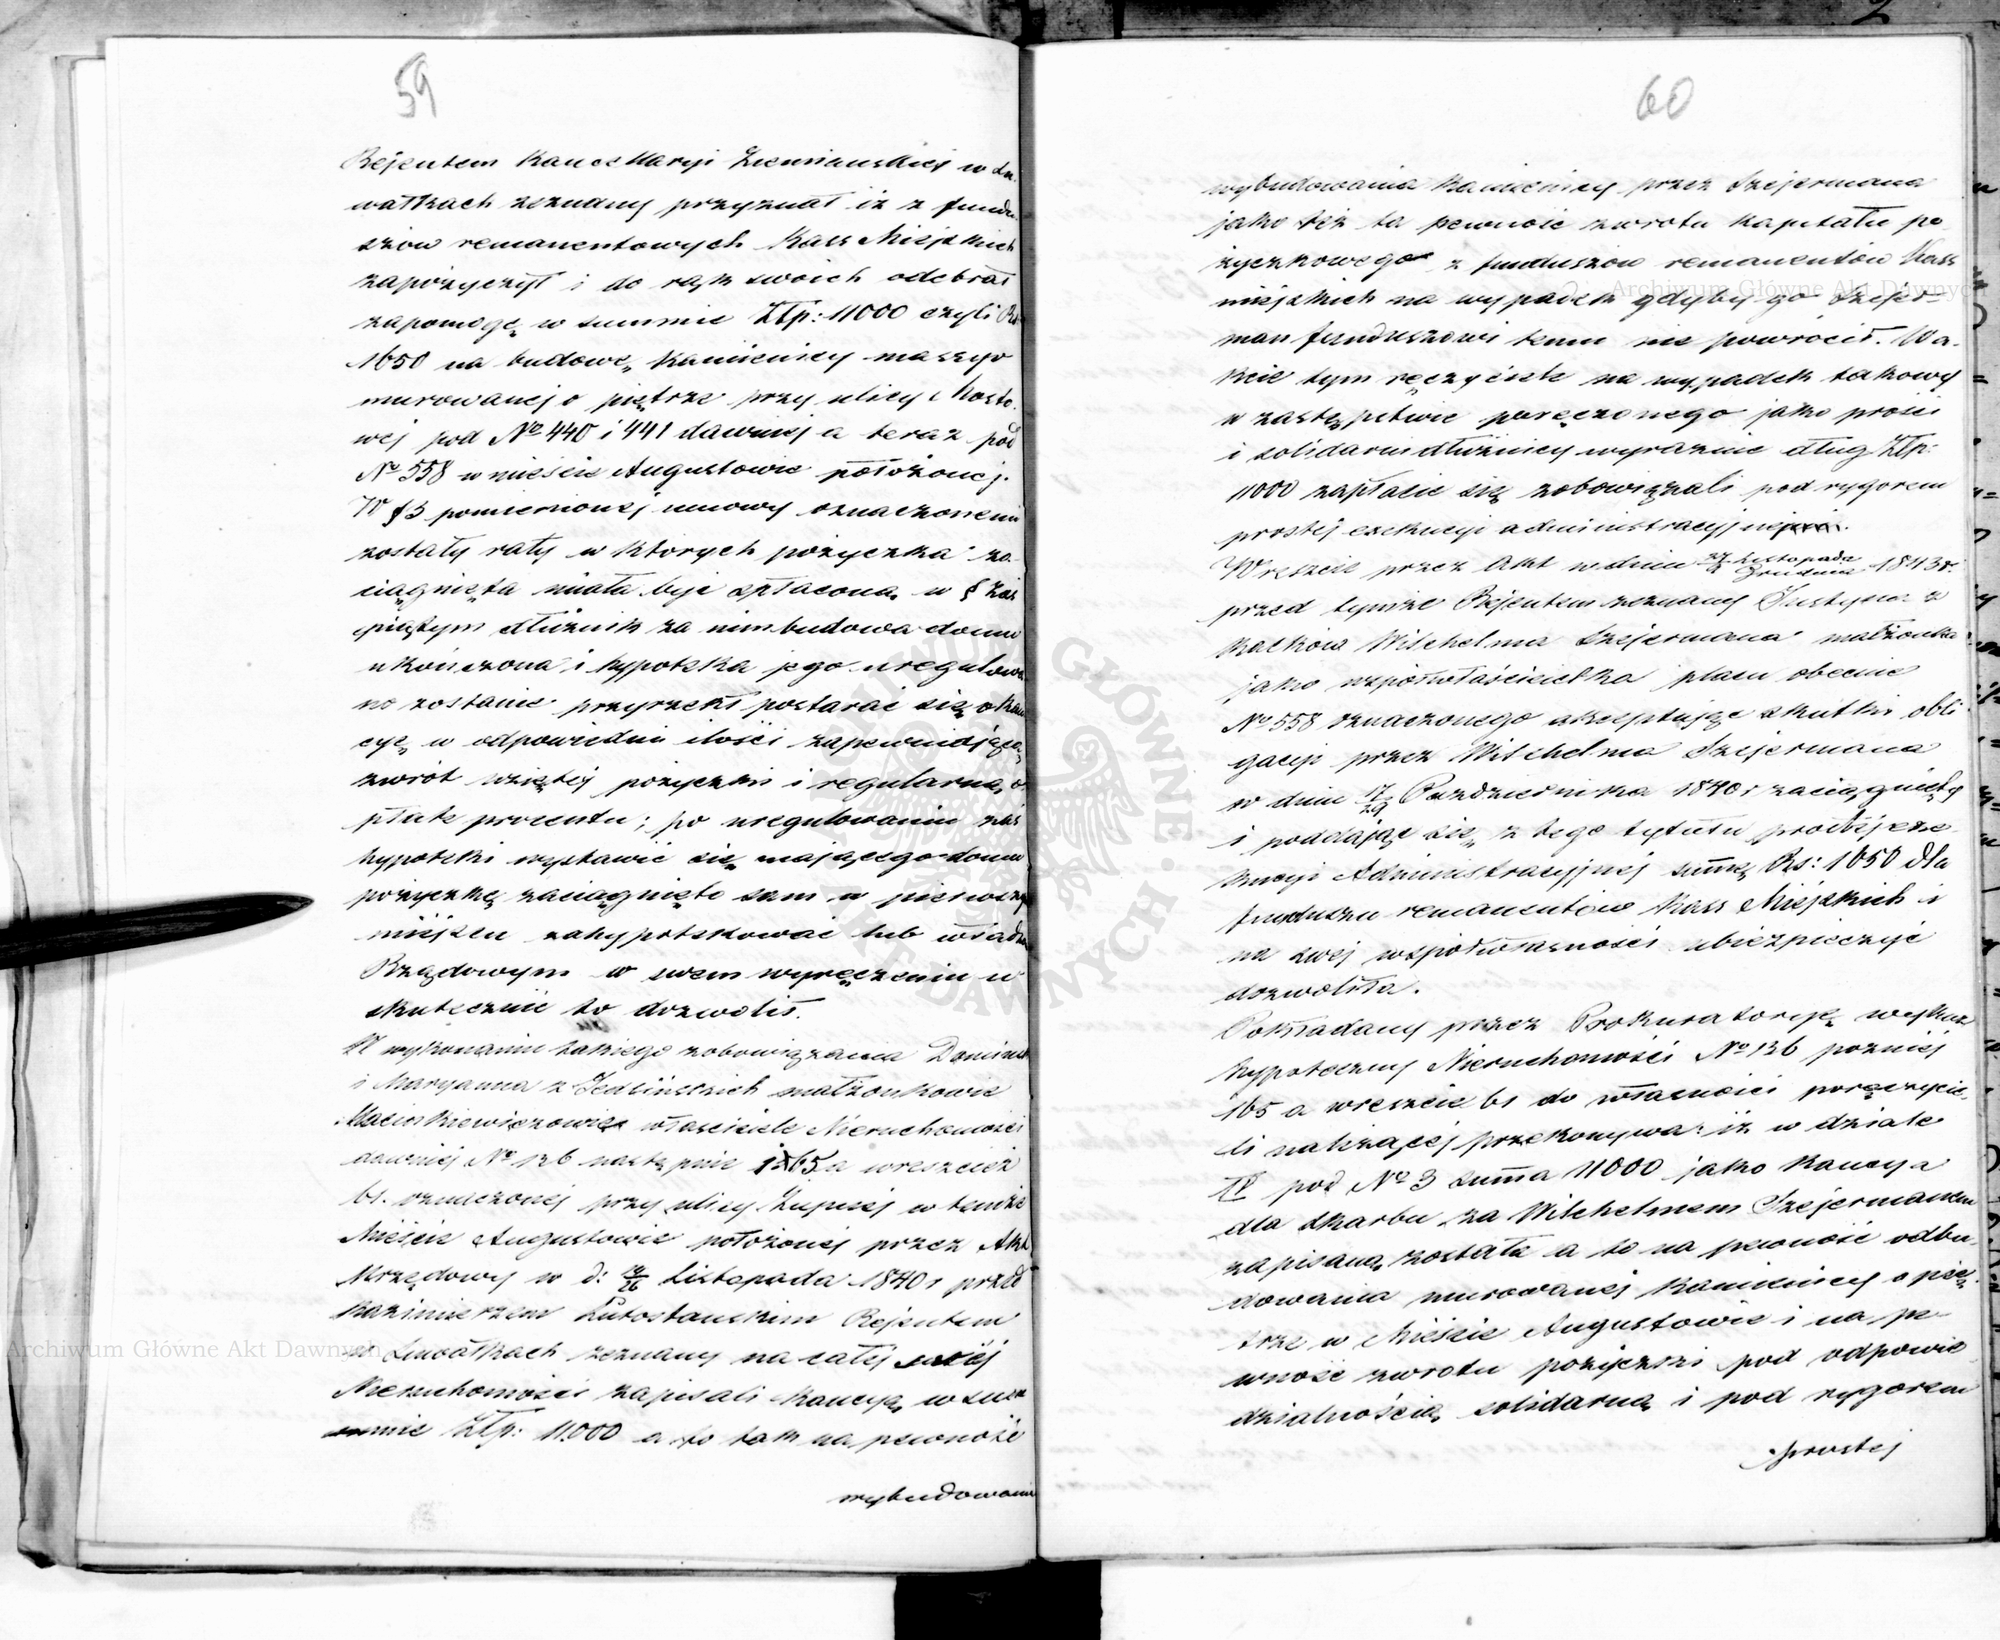 59
Rejentem Kancellaryi Ziemiańskiej w Su-
wałkach zeznany przyznał iż z fundu-
szów remanentowych Kass Miejskich
zapożyczył i do rąk swoich odebrał
zapomogę w summie Złp: 11000 czyli Rs
1650 na budowę kamienicy massyo
murowanej o piętrze przy ulicy Mosto-
wej pod No 440 i 441 dawniej a teraz pod
No 558 w mieście Augustowie położonej.
W § 3 pomienionej umowy oznaczonemi
zostały raty w których pożyczka za-
ciągnięta miała być spłaconą w § zaś
piątym dłużnik za nim budowa domu
ukończona i hypoteka jego uregulowa
no zostanie przyrzekł postarać się o kau
cyę w odpowiedni ilości zapewniającą
zwrót wziętej pożyczki i regularną o
płatę procentu; po uregulowaniu zaś
hypoteki wystawić się mającego domu
pożyczkę zaciągnięte sam w pierwszym
miejscu zahypotekować lub władzom
Rządowym w swem wyręczeniu u
skutecznić to dozwolił.
W wykonaniu takiego zobowiązania Dominik
i Maryanna z Jedlińskich małżonkowie
Macinkiewiczowie właściciele Nieruchomości
dawniej No 126 następnie 165 a wreszcie
61. oznaczonej przy ulicy Zupnej w temże
Mieście Augustowie położonej przez Akt
Urzędowy w d: 14/26 Listopada 1840 r przed
Kazimierzem Lutostańskim Rejentem
w Suwałkach zeznany na całej swej
Nieruchomości zapisali kaucyę w sum
mie Złp: 11.000 a to tak na pewność
wybudowani
60
wybudowania kamienicy przez Szejermana
jako też ta pewność zwrotu kapitału po
życzkowego z funduszów remanentów Kass
miejskich na wypadek gdyby go Szejer-
man funduszowi temu nie powrócił. W a-
kcie tym ręczyciele na wypadek takowy
w zastępstwie poręczonego jako prości
i solidarni dłużnicy wyraźnie dług Złp:
11000 zapłacić się zobowiązali pod rygorem
prostej exekucyi administracyjnej.
Wreszcie przez Akt w dniu Listopada Grudnia 1843 r.
przed tymże Rejentem zeznany Justyna z
Kalków Wilchelma Szejermana małżonka
jako współwłaścicielka placu obecnie
No 558 oznaczonego akceptując skutki obli
gacyi przez Wilchelma Szejermana
w dniu 17/29 Października 1840 r zaciągnięty
i poddając się z tego tytułu prostej exe
kucyi Administracyjnej summę Rs: 1650 dla
funduszu remanentów Kass Miejskich i
na swej współwłasności ubezpieczyć
dozwoliła.
Pokładany przez Prokuratoryę wykaz
hypoteczny Nieruchomości No 126 pozniej
165 a wreszcie 61 do własności poręczycie
li należącej przekonywa: iż w dziale
IV pod No 3 summa 11000 jako kaucya
dla skarbu za Wilchelmem Szejermanem
zapisaną została a to na pewność odbu
dowania murowanej kamienicy o pię
trze w Mieście Augustowie i na pe
wność zwrotu pożyczki pod odpowie
dzialnością solidarną i pod rygorem
prostej
Archiwum Główne Akt Dawnych
Archiwum Główne Akt Dawnych
2